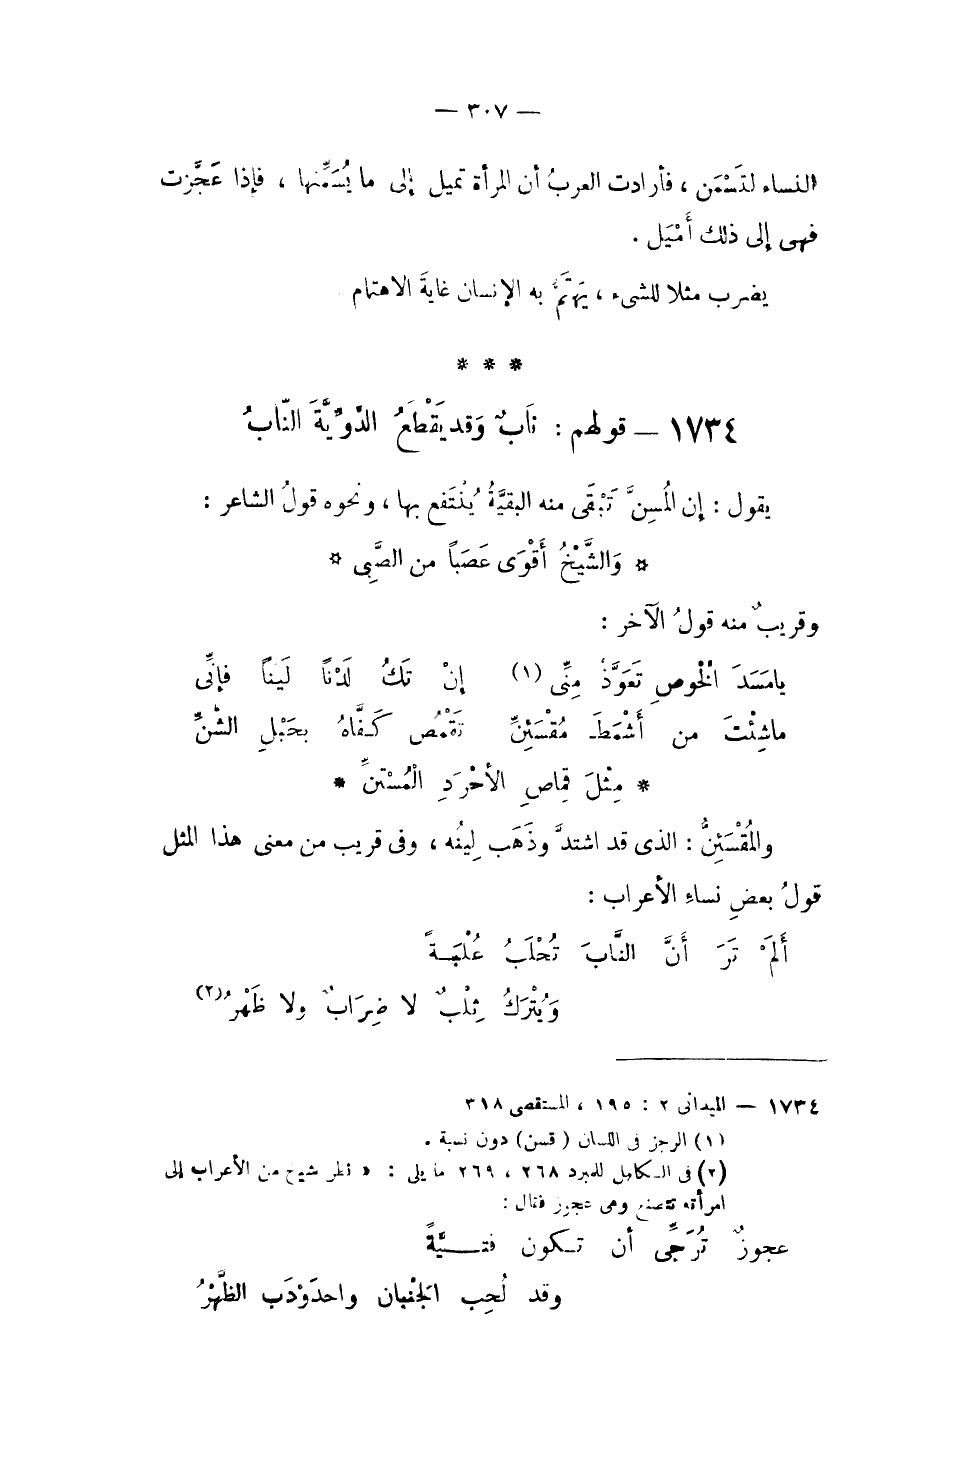 — ٣٠٧ —
النساء لتَسْمَن ، فأرادت العربُ أن المرأة تميل إلى ما يُسَمِّنها ، فإذا عَجَّزت
فهى إلى ذلك أَمْيَل .
يضرب مثلا للشىء ، يَهتَمُّ به الإنسان غايةَ الاهتمام
* * *
١٧٣٤ — قولهم : نَابٌ وَقد يَقْطَعُ الدَّوِّيَّةَ النَّابُ
يقول : إن المُسِنَّ تَبْقَى منه البقيَّةُ يُنْتَفع بها ، ونحوه قولُ الشاعر :
* وَالشَّيْخُ أَقْوَى عَصَباً من الصَّبِى *
وقريبٌ منه قولُ الآخر :
يا مَسَدَ الْخُوصِ تَعَوَّذْ مِنِّى (١) إِنْ تَكُ لَدْناً لَيناً فإنِّى
ماشِئْتَ من أَشْمَطَ مُقْسَئِنِّ تَقْمُص كَفَّاهُ بحَبْلِ الشَّنِّ
* مِثْلَ قِماصِ الأحْرَدِ الْمُسْتَنِّ *
والمُقْسَئِنُّ : الذى قد اشتدَّ وذَهَب لِينُه ، وفى قريب من معنى هذا المثل
قولُ بعضِ نساءِ الأعراب :
أَلَمْ تَرَ أَنَّ النَّابَ تُحْلَبُ عُلْبَةً
وَيُتْرَكُ ثِلْبٌ لا ضِرَابٌ ولا ظَهْرُ (٢)
١٧٣٤ — الميدانى ٢ : ١٩٥ ، المستقصى ٣١٨
(١) الرجز فى اللسان ( قسن ) دون نسبة .
(٢) فى الكامل للمبرد ٢٦٨ ، ٢٦٩ ما يلى : « نظر شيخ من الأعراب إلى
امرأته تتصنع وهى عجوز فقال :
عجوزٌ تُرَجِّى أن تكون فتيَّةً
وقد لُحِب الْجَنْبان واحدَوْدَب الظَّهْرُ